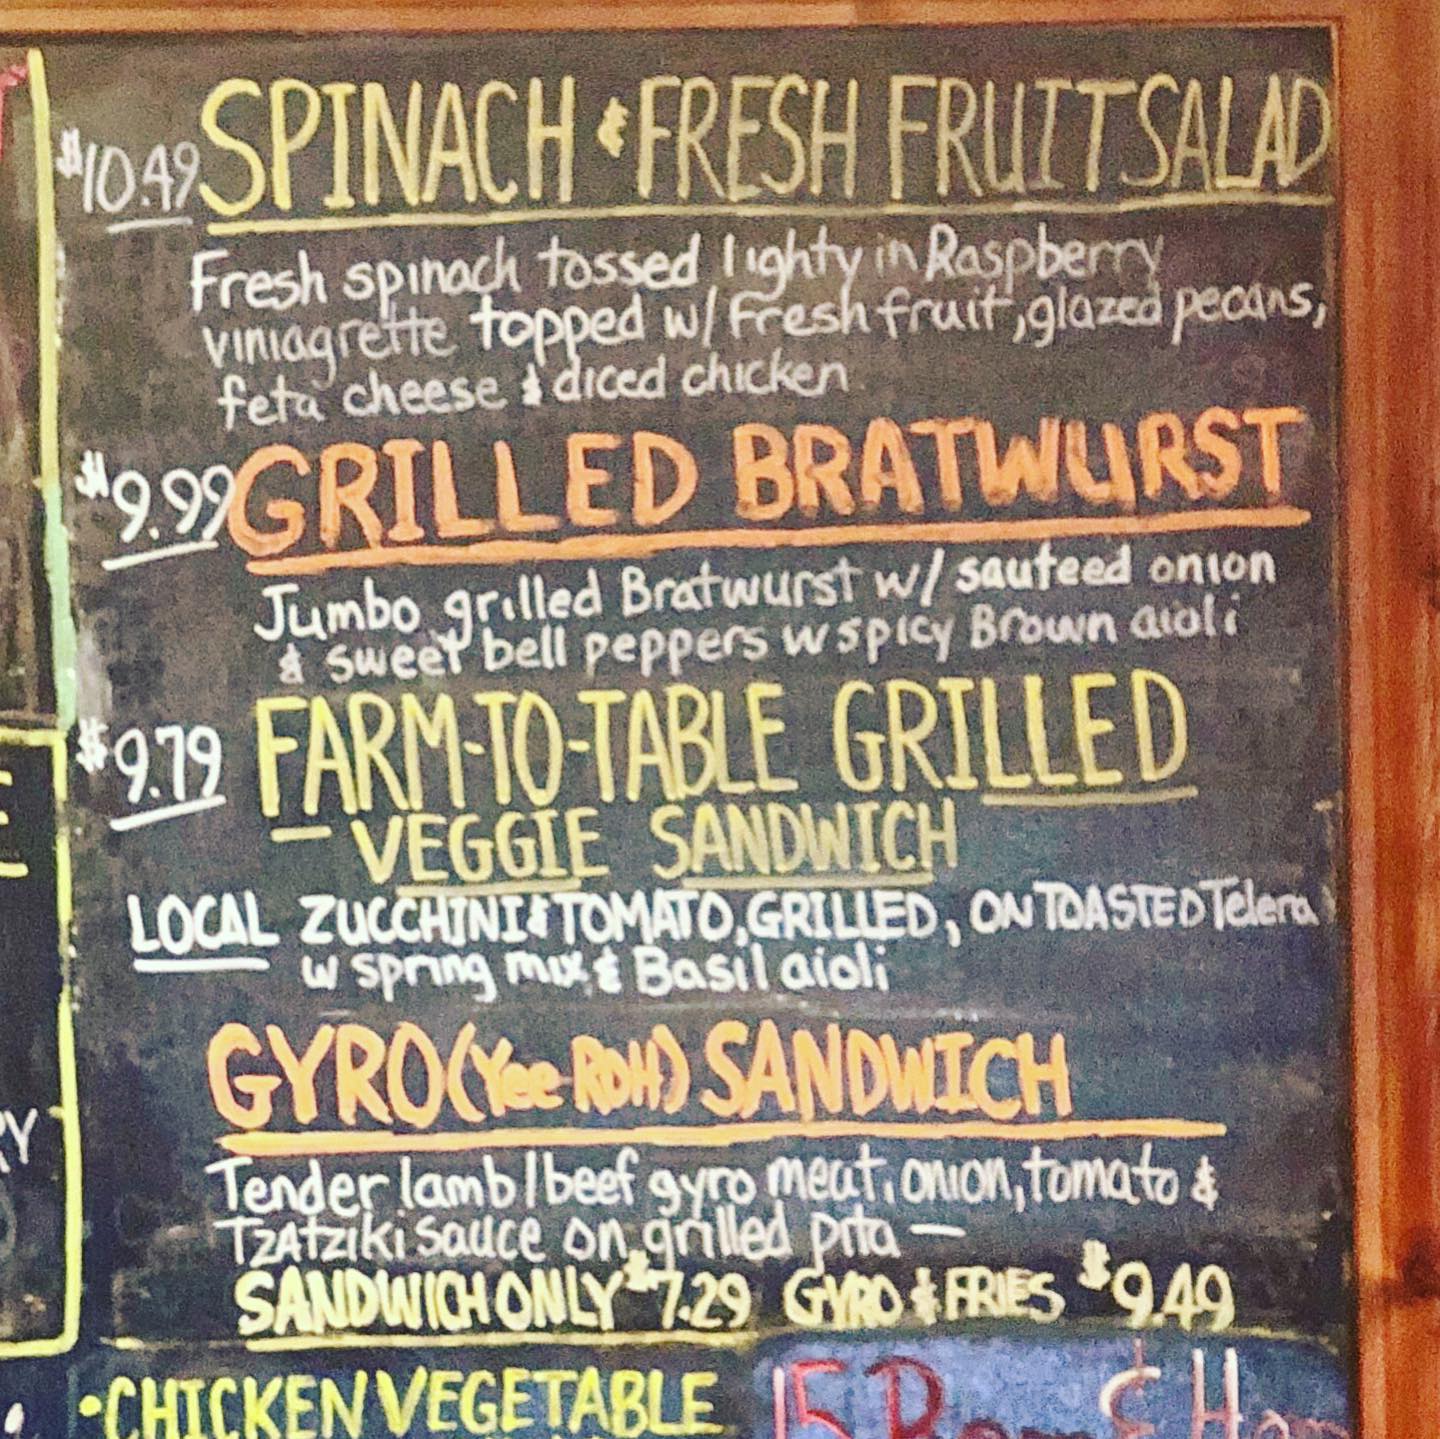 SPINACH & FRESH FRUIT SALAD
$10.49
Fresh spinach tossed lighty in Raspberry
viniagrette topped w/ Fresh fruit, glazed pecans,
feta cheese & diced chicken
$9.99 GRILLED BRATWURST
Jumbo grilled Bratwurst w/ sauteed onion
& sweet bell peppers w spicy Brown aioli
$9.79 FARM-TO-TABLE GRILLED
VEGGIE SANDWICH
LOCAL ZUCCHINI & TOMATO, GRILLED, ON TOASTED Telera
w spring mix & Basil aioli
GYRO (Yee-ROH) SANDWICH
Tender lamb/beef gyro meat, onion, tomato &
TZATZiki sauce on grilled pita —
SANDWICH ONLY $7.29 GYRO & FRIES $9.49
• CHICKEN VEGETABLE